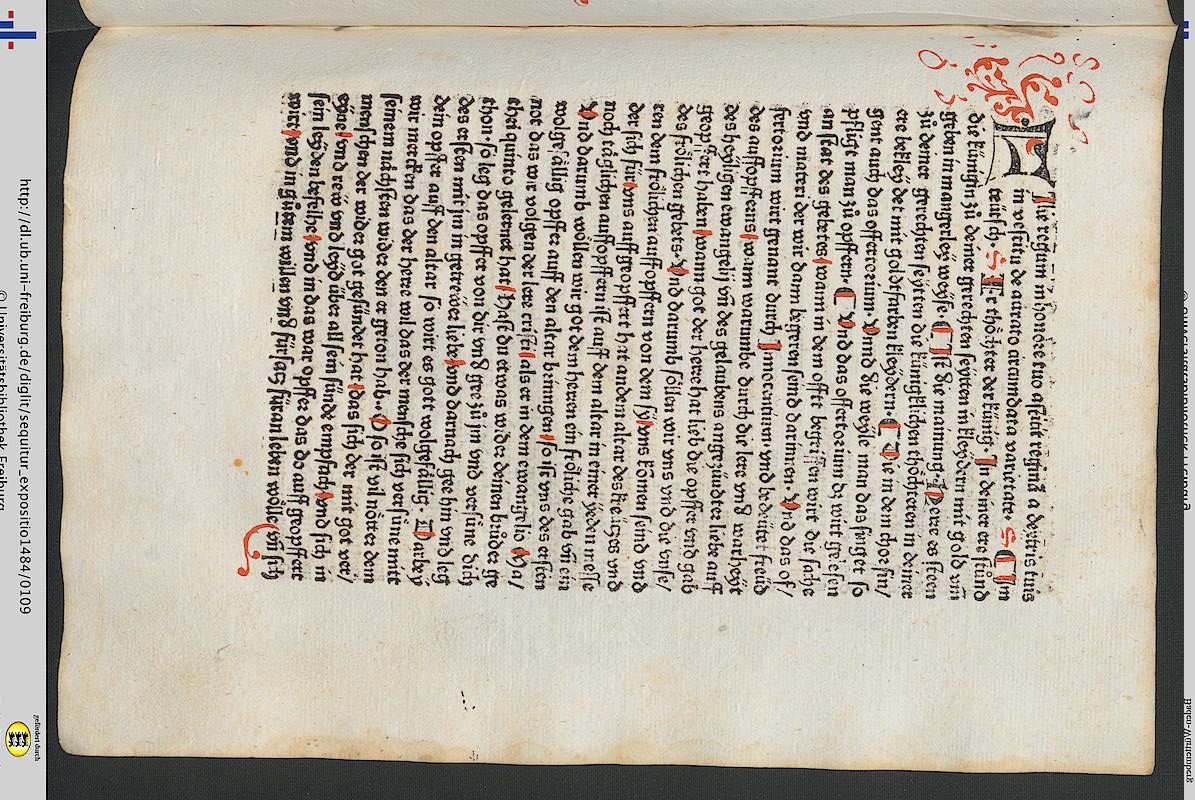 Filie regum in honore tuo astitit regina a dextris tuis
in vestitu de aurato circumdata varietate. ¶ Im
teütsch. Der thöchter der künig. In deiner ere stünd
die künigin zů deiner gerechten seytten in kleydern mit gold vm
geben in mangerley weyse. ¶ Ist die mainung. Herre es steen
zů deiner gerechten seytten die künigklichen thöchteren in deiner
ere bekleydet mit goldtfarben kleydern. ¶ Die in dem chor sin/
gent auch das offertorium. Vnnd die weyle man das singet so
pfligt man zů opffern. ¶ Vnd das offertorium dz wirt gelesen
an stat des gebetes, wann in dem offitt begriffen wirt die sache
vnd materi der wir dann begeren seind darinnen. Vnd das of/
fertorium wirt genant durch Innocentium. vnd bedeütet freüd
des auffopfferns, wann warumbe durch die lere vnd warheyt
des heyligen ewangelij vñ des gelaubens angezündet liebe auff
geopffert haben, wann got der herre hat lieb die opffer vnd gab
des frölichen gebers. Vnd darumb söllen wir vns vnd die vnse/
ren dem frölichen auffopffern von dem sy vns komen seind vnd
der sich für vns auffgeopffert hat an dem altar des kreützes vnd
noch täglichen auffopffern ist auff dem altar in einer yeden messe
Vnd darumb wollen wir got dem herren ein fröliche gab vñ ein
wolgefällig opffer auff den altar bringen, so ist vns des ersten
not das wir volgen der lere cristi, als er in dem ewangelio Ma/
thei quinto gelernet hat, Hast du etwas wider deinen brůder ge
thon. so leg das opffer von dir vnd gee zů jm vnd versüne dich
des ersten mit jm in getrewer liebe, vnd darnach gee hin vnd leg
dein opffer auff den altar so wirt es gott wolgefällig. Darbey
wir mercken das der herre wil das der mensche sich versüne mit
seinem nächsten wider den er geton hab. O so ist vil nötter dem
menschen der wider got gesündet hat, das sich der mit got verei/
yne, vnd rew vnd leyd über all sein sünde empfach, vnd sich in
sein leyden befelhe, vnd in das war opffer das do auff geopffert
wirt, vnd in gůttem willen vnd fürsatz füran leben wölle, vñ sich
http://dl.ub.uni-freiburg.de/diglit/sequitur_expositio1484/0109
© Universitätsbibliothek Freiburg
gefördert durch
Baden-Württemberg